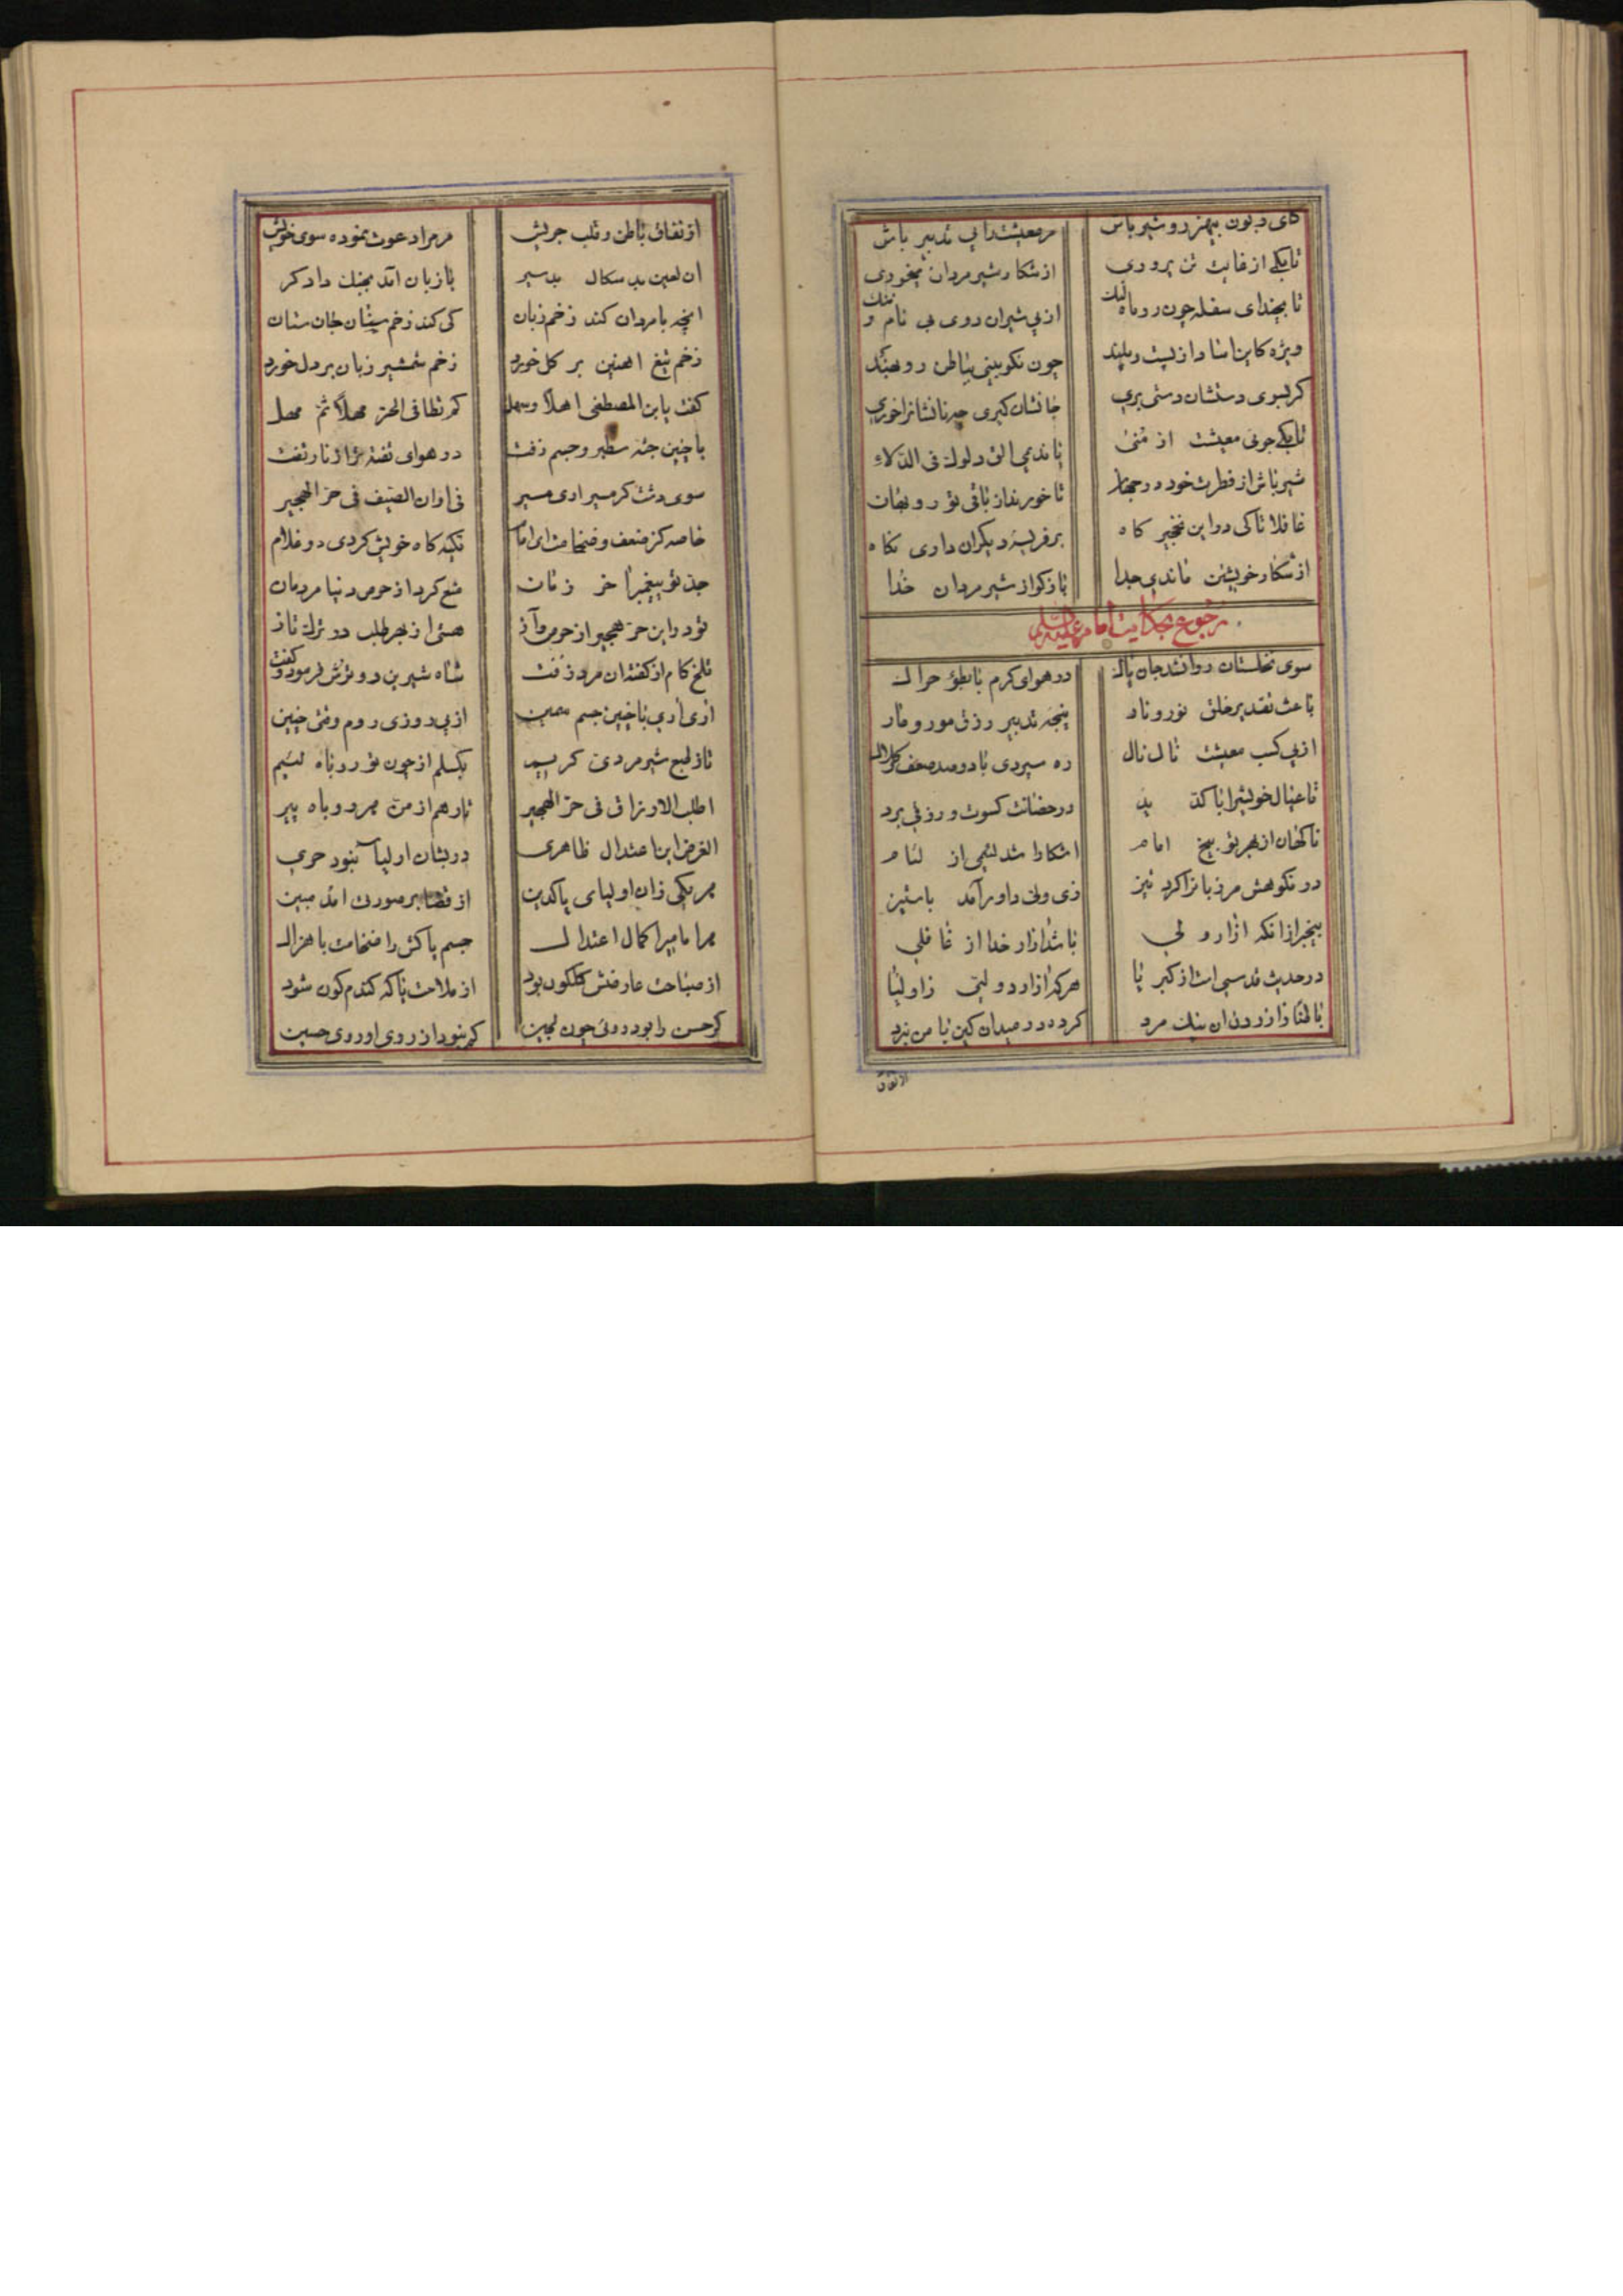 کای دبون بیهنر رو شیر باش مر معیشت را پی تدبیر باش
تا بکی از غایت تن پروری از شکار شیر مردان میخوری
تا بچند ای سفله چون روباه لنک از پی شیران روی بی نام و ننک
ویژه کاین اشا از پست و بلند چون نکو بینی بباطن روبهند
کر بسوی دستشان دستی بری جانشان کیری چه نانشانرا خوری
تا بکی جوئی معیشت از منی یا ندیمی الق دلوك فی الدلاء
شیر باش از فطرت خود در جهان تا خورند از باقی تو روبهان
غافلا تا کی در این نخجیر کاه بر فریسه دیکران داری نکاه
از شکار خویشتن ماندی جدا باز کو از شیر مردان خدا
رجوع بحکایت امام علیه السلام
سوی نخلستان روانشد جان پاك در هوای کرم با بطؤ حراك
باعث تقدیر خلق نور و نار پنجه تدبیر رزق مور و مار
از پی کسب معیشت نال نال ره سپردی با دو صد ضعف کلال
تا عیال خویشرا با کد ید در حضانت کسوت و رزقی برد
ناکهان از بهر توبیخ امام اشکارا شد لئیمی از لئام
در نکوهش مر زبانرا کرد تیز زی ولی داور آمد با ستیز
بیخبر از انکه ازار ولی باشد ازار خدا از غافلی
در حدیث قدسی است از کبریا هر که ازارد ولیی ز اولیا
باطنا ز ازردن ان نیك مرد کرده در میدان کین با من نبرد
از نفاق باطن و قلب جریش مر مرا دعوت نموده سوی خویش
ان لعین بد سکال بد سیر با زبان آمد بجنك دادکر
انچه با مردان کند زخم زبان کی کند زخم سنان جان ستان
زخم تیغ اهنین بر کل خورد زخم شمشیر زبان بر دل خورد
کفت یابن المصطفی اهلا وسهل کم تطاق الحر مهلا ثم مهل
با چنین جثه سطبر و جسم زفت در هوای تفته تر از نار تفت
سوی دشت کرمسیر اری مسیر فی اوان الصیف فی حر الهجیر
خاصه کز ضعف و ضخامت ای امام تکیه کاه خویش کردی دو غلام
جد تو پیغمبر اخر زمان منع کرد از حرص دنیا مردمان
تو در این حر هجیر از حرص و آز هستی از بهر طلب در ترك تاز
تلخ کام از کفته ان مرد زفت شاه شیرین در ترش فرمود و کفت
اری اری با چنین جسم سمین از پی روزی روم وقتی چنین
تا ز طبع شیر مردی کریم بکسلم از چون تو روباه لئیم
اطلب الارزاق فی حر الهجیر تا رهم از من هر روباه پیر
الغرض این اعتدال ظاهری در بشان اولیا نبود حری
هر یکی زان اولیای پاکدین از قضا بر صورت امد مبین
مر امامیرا کمال اعتدال جسم پاکش را ضخامت با هزال
از صباحت عارضش کلکون بود از ملاحت یا که کندم کون شود
کر حسن را بود روئی چون لجین کم نبود از روی او روی حسین
الانفاق